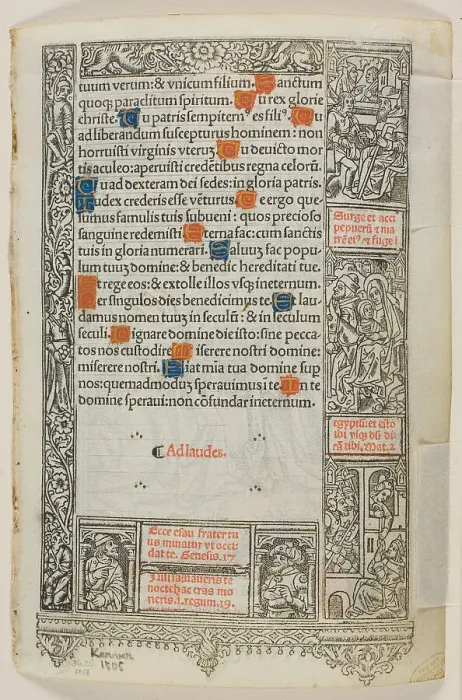 tuum verum: & vnicum filium. Sanctum
quoq; paraditum spiritum. Tu rex glorie
christe. Tu patris sempitern⁹ es fili⁹. Tu
ad liberandum suscepturus hominem: non
horruisti virginis vteruȝ. Tu deuicto mor
tis aculeo: aperuisti credētibus regna celorū.
Tu ad dexteram dei sedes: in gloria patris.
Iudex crederis esse vēturus. Te ergo que-
sumus famulis tuis subueni: quos precioso
sanguine redemisti. Eterna fac: cum sanctis
tuis in gloria numerari. Saluuȝ fac popu-
lum tuuȝ domine: & benedic hereditati tue.
Et rege eos: & extolle illos vsq; ineternum.
Per singulos dies benedicimus te. Et lau-
damus nomen tuuȝ in seculū: & in seculum
seculi. Dignare domine die isto: sine pecca-
to nos custodire. Miserere nostri domine:
miserere nostri. Fiat mia tua domine sup
nos: quemadmoduȝ sperauimus i te. In te
domine speraui: non cōfundar ineternum.
Ad laudes.
Surge et acci
pe puerū ⁊ ma
trē ei⁹ ⁊ fuge i
egyptū: et esto
ibi vsq; dū di-
cā tibi. Mat. 2
Ecce esau frater tu
us minatur vt occi
dat te. Genesis. 17
Nisi saluaueris te
nocte hac cras mo
rieris. i. regum. 19.
Kerver
1505